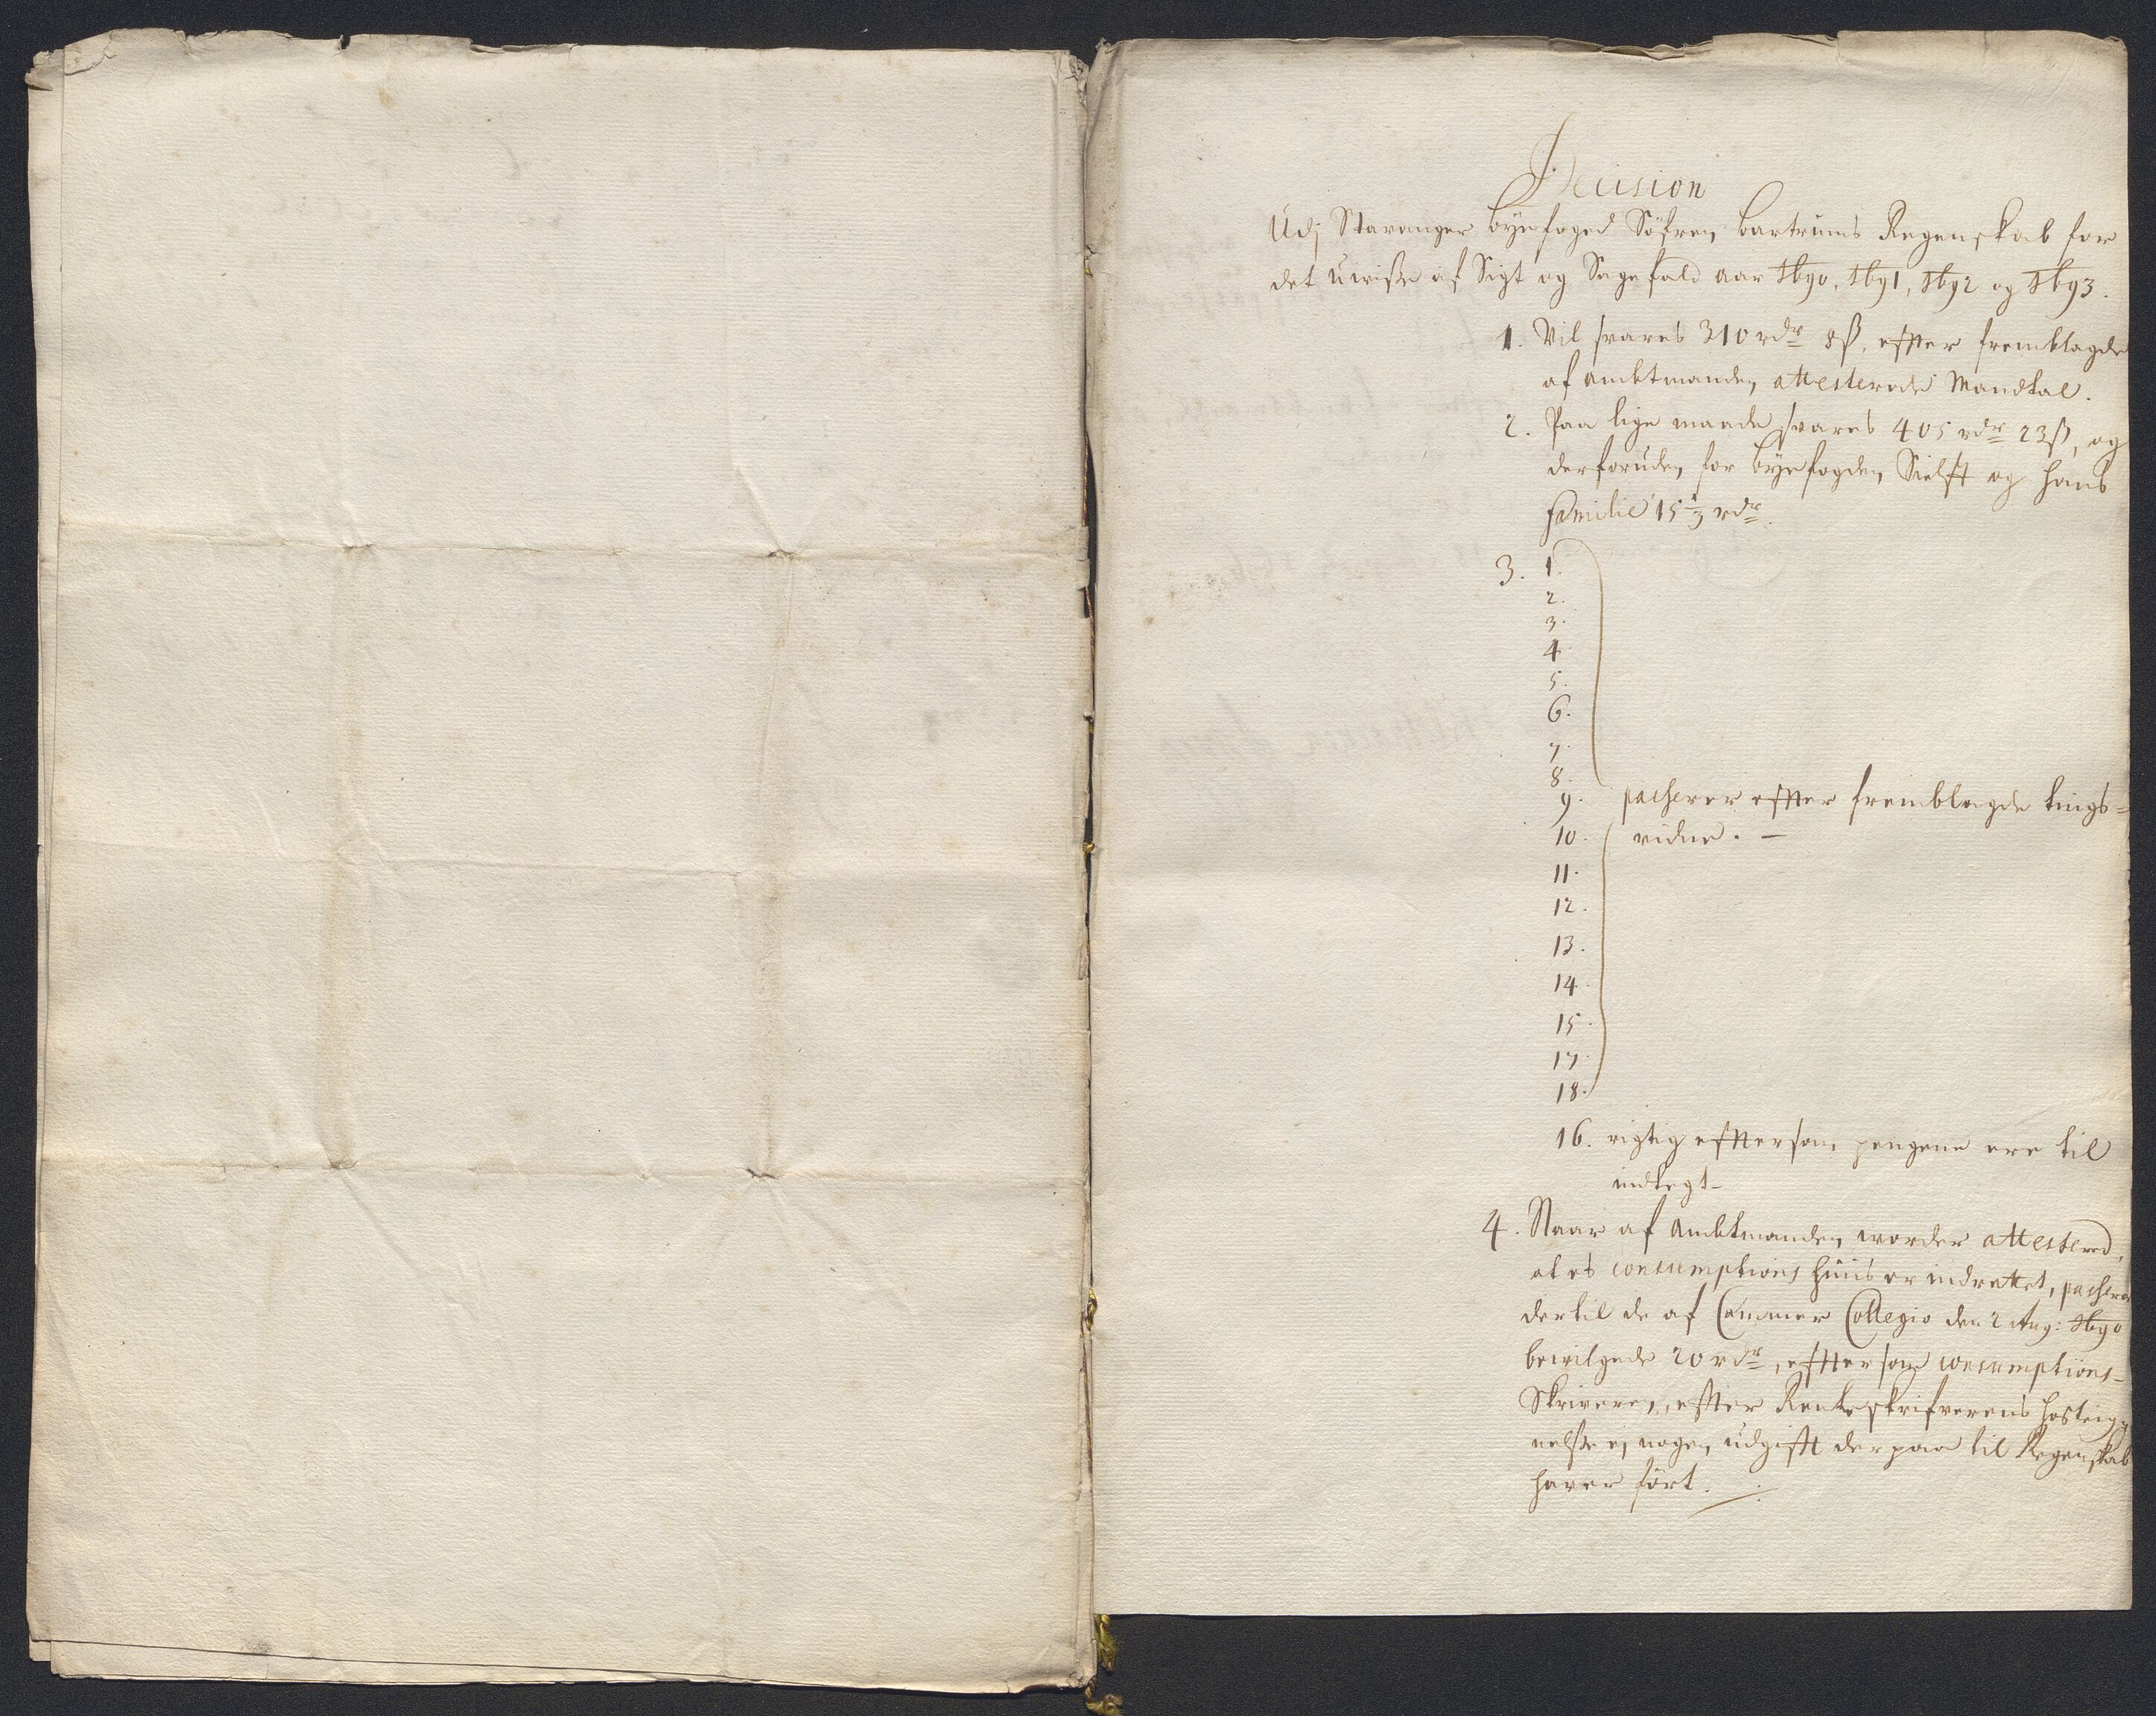 Decision
Udj Stavanger byefoged Söfren Bartrums Regenskab for
det uwisse af Sigt og Sagefald aar 1690, 1691, 1692 og 1693.
1. Vil svares 310 rdr 8ß, effter fremblagde
af amktmanden attesterede Mandtal.
2. Paa lige maade svares 405 rdr 23ß, og
derforuden for byefogden Sielff og hans
familie 15⅓ rdr.
3. 1.
2.
3.
4.
5.
6.
7.
8.
9. passerer effter fremblagde tings-
10. vidne. -
11.
12.
13.
14.
15.
17.
18.
16. rigtig efftersom pengene ere til
indtegt-
4. Naar af Amktmanden worder attestered,
at et consumptions huus er indrettet, passerer
dertil de af Cammer Collegio den 2 Aug: 1690
bevilgede 20 rdr, efftersom consumptions-
Skriveren, effter Renteskrifverens
nelsse ej nogen udgifft derpaa til Regenskab
haver fört.